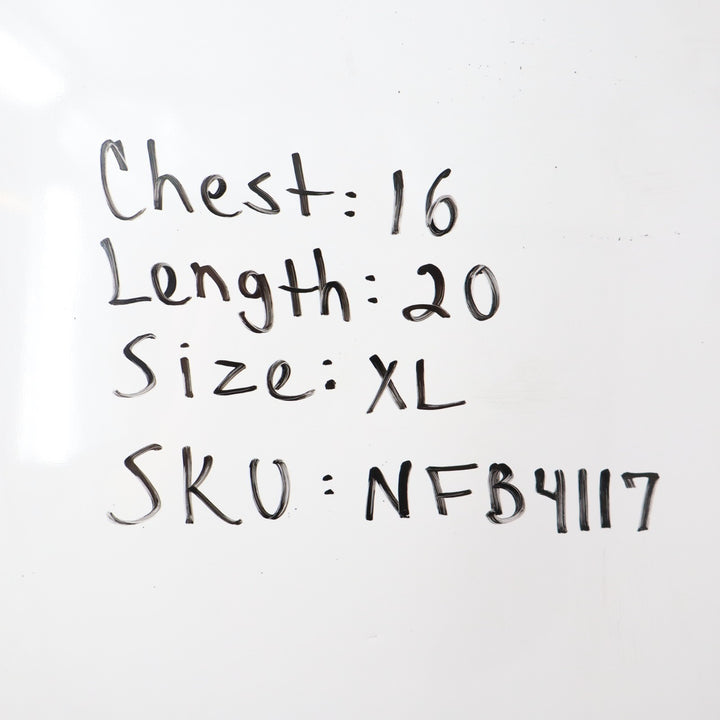 Chest: 16
Length: 20
Size: XL
SKU: NFB4117